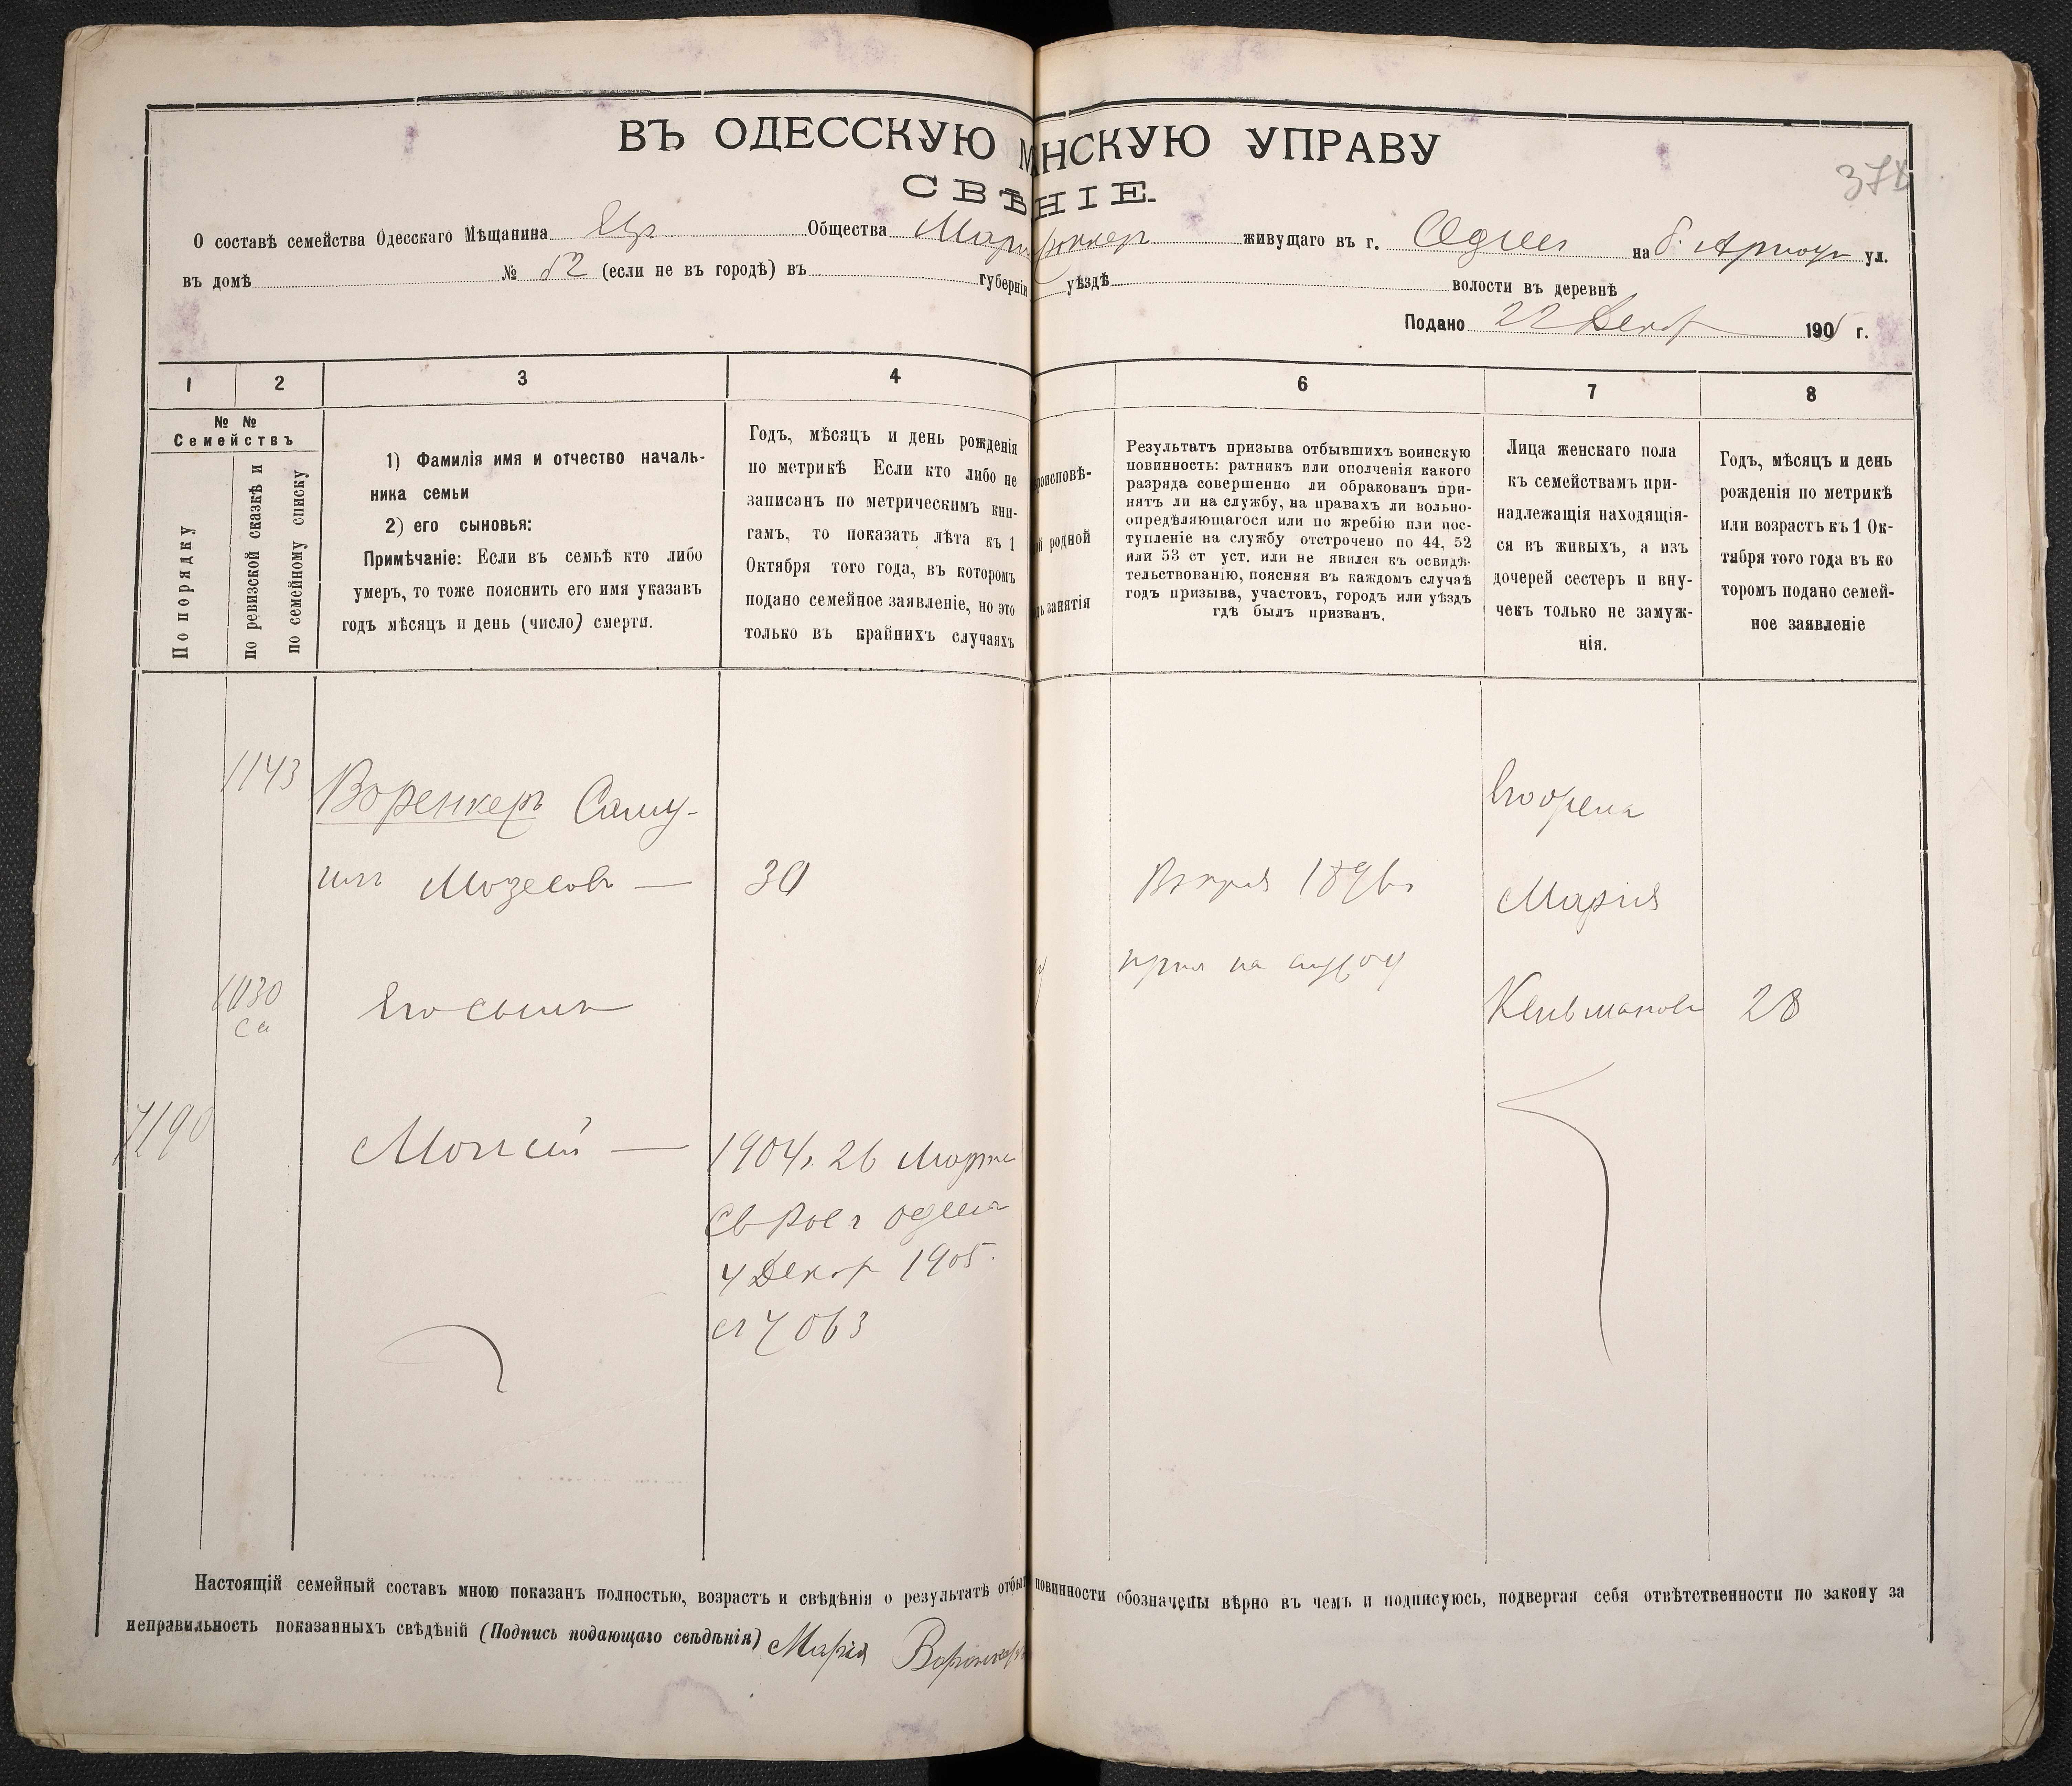 ВЪ ОДЕССКУЮ М НСКУЮ УПРАВУ
СВѢ НІЕ.
378
О составѣ семейства Одесскаго Мѣщанина Евр Общества живущаго въ г. Одессѣ на Б. Арноут ул.
въ домѣ № 52 (если не въ городѣ) въ губерніи уѣздѣ волости въ деревнѣ
Подано 22 Декаб 1905 г.
1 2 3 4 6 7 8
№ №
Семействъ
По порядку
по ревизской сказкѣ и
по семейному списку
1) Фамилія имя и отчество началь-
ника семьи
2) его сыновья:
Примѣчаніе: Если въ семьѣ кто либо
умеръ, то тоже пояснить его имя указавъ
годъ мѣсяцъ и день (число) смерти.
Годъ, мѣсяцъ и день рожденія
по метрикѣ Если кто либо не
записанъ по метрическимъ кни-
гамъ, то показать лѣта къ 1
Октября того года, въ которомъ
подано семейное заявленіе, но это
только въ крайнихъ случаяхъ
роисповѣ-
й родной
ъ занятія
Результатъ призыва отбывшихъ воинскую
повинность: ратникъ или ополченія какого
разряда совершенно ли обракованъ при-
нятъ ли на службу, на правахъ ли вольно-
опредѣляющагося или по жребію или пос-
тупленіе на службу отстрочено по 44, 52
или 53 ст уст. или не явился къ освидѣ-
тельствованію, поясняя въ каждомъ случаѣ
годъ призыва, участокъ, городъ или уѣздъ
гдѣ былъ призванъ.
Лица женскаго пола
къ семействамъ при-
надлежащія находящія-
ся въ живыхъ, а изъ
дочерей сестеръ и вну-
чекъ только не замуж-
нія.
Годъ, мѣсяцъ и день
рожденія по метрикѣ
или возрастъ къ 1 Ок-
тября того года въ ко
торомъ подано семей-
ное заявленіе
1143
Воренкеръ Саму-
илъ Мозесовъ — 30
Въ приз 1896 г
прин на службу
Его жена
Марія
Кельманова 28
1030
са
Его сынъ
7190
Моисей — 1904 г. 26 Марта
Св Рос г Одессы
4 Декаб 1905.
№ 7063
Настоящій семейный составъ мною показанъ полностью, возрастъ и свѣдѣнія о результатѣ отбыт повинности обозначены вѣрно въ чемъ и подписуюсь, подвергая себя отвѣтственности по закону за
неправильность показанныхъ свѣдѣній (Подпись подающаго свѣдѣнія) Марія Воронкеръ